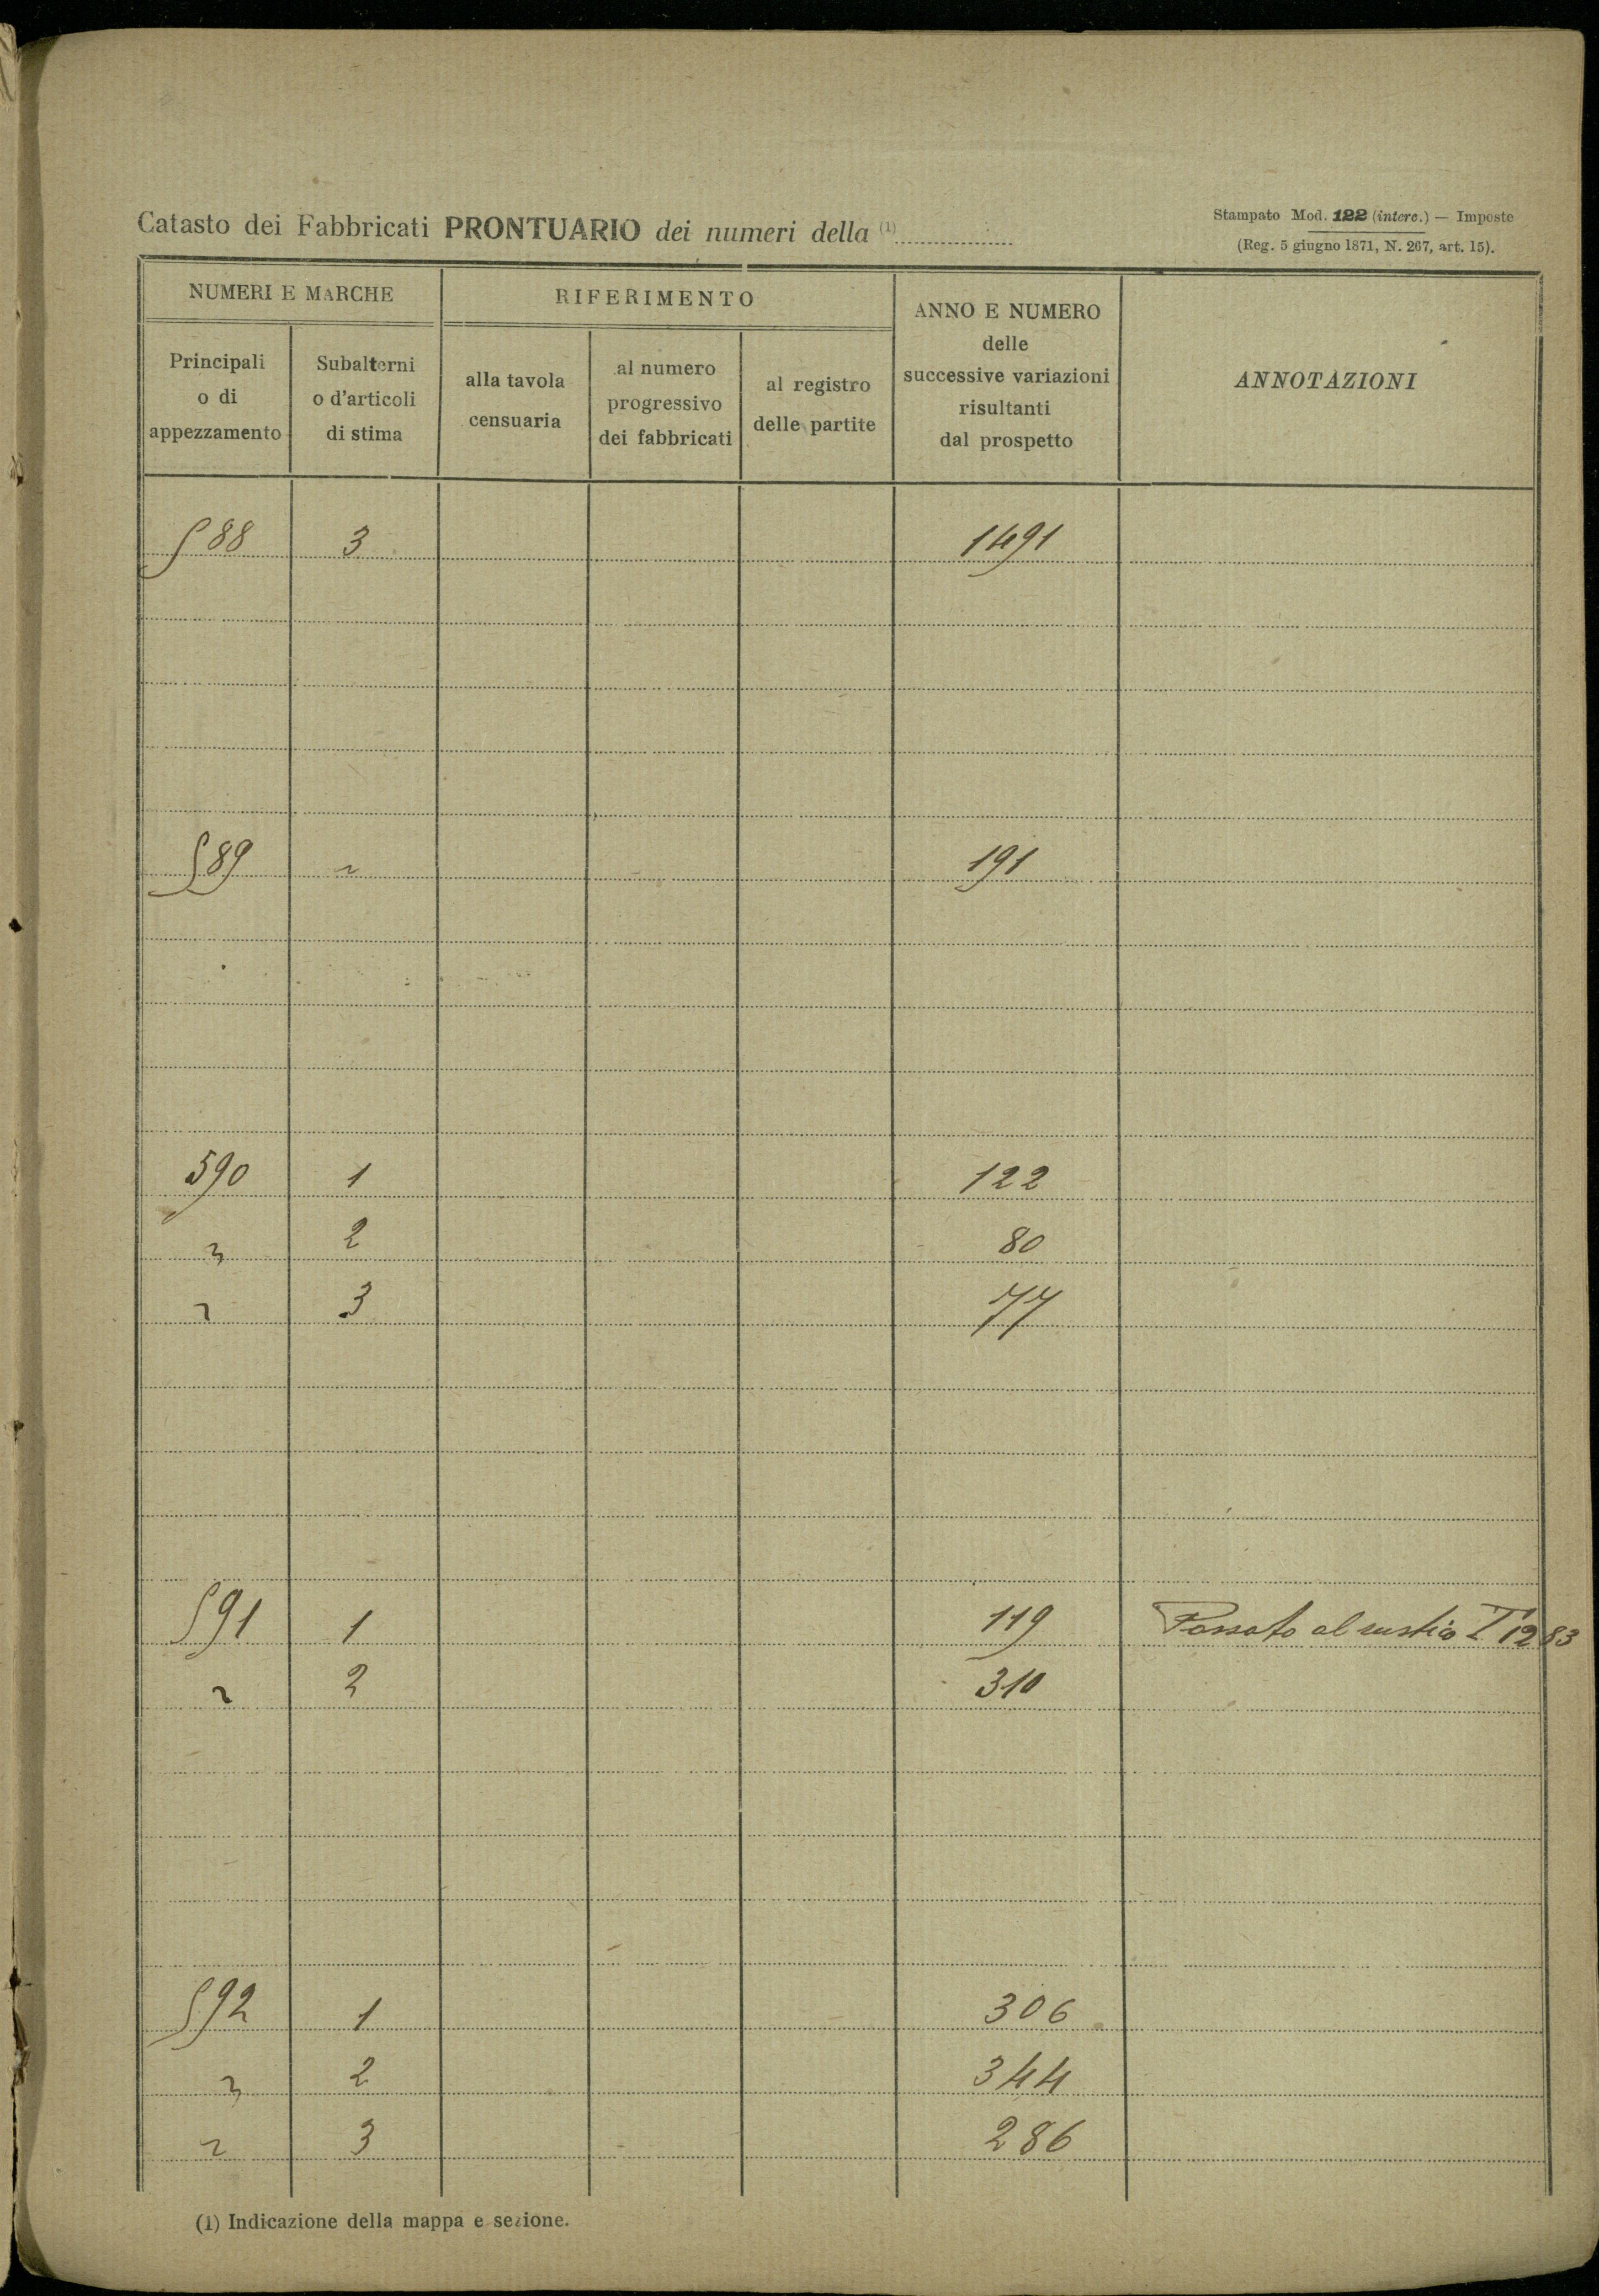 Catasto dei Fabbricati PRONTUARIO dei numeri della (1)
Stampato Mod. 122 (interc.) — Imposte
(Reg. 5 giugno 1871, N. 267, art. 15).
NUMERI E MARCHE
RIFERIMENTO
ANNO E NUMERO
delle
successive variazioni
risultanti
dal prospetto
ANNOTAZIONI
Principali
o di
appezzamento
Subalterni
o d'articoli
di stima
alla tavola
censuaria
al numero
progressivo
dei fabbricati
al registro
delle partite
588 3 1491
589 " 191
590 1 122
" 2 80
" 3 77
591 1 119 Passato al rustico T 1283
" 2 310
592 1 306
" 2 344
" 3 286
(1) Indicazione della mappa e sezione.